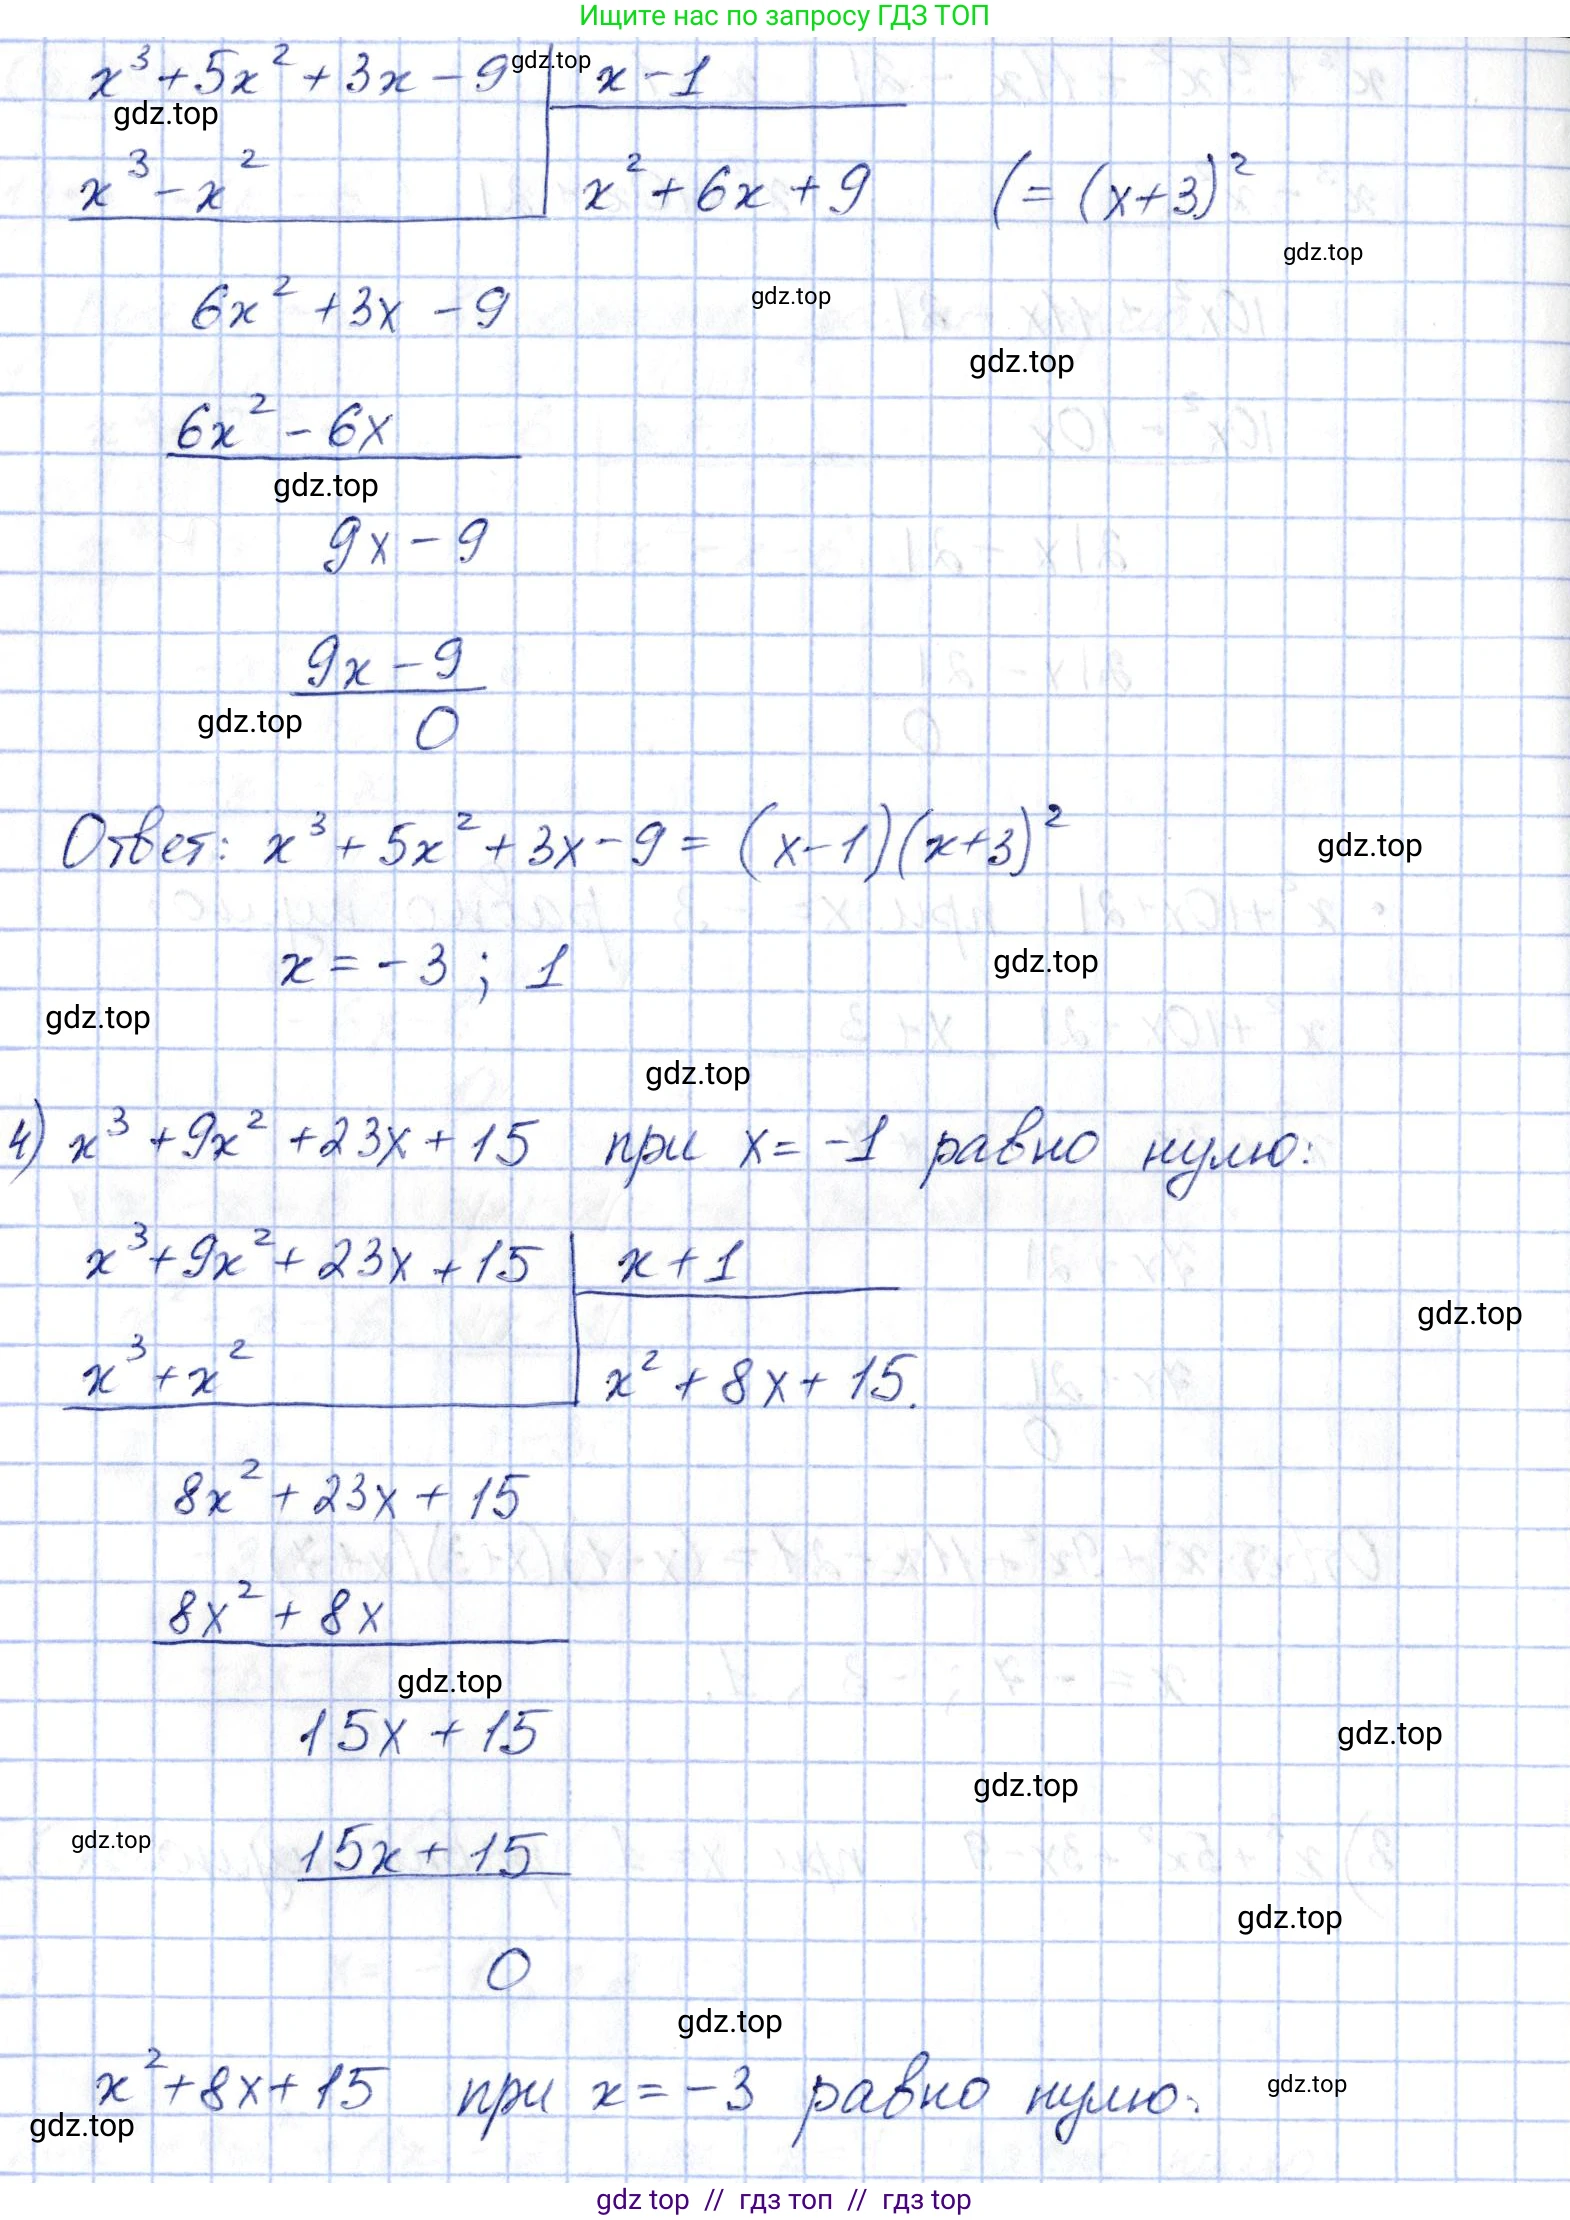 Ищите нас по запросу ГДЗ ТОП
x³ + 5x² + 3x - 9 gdz.top x - 1
gdz.top
x³ - x² x² + 6x + 9 (= (x+3)²
gdz.top
6x² + 3x - 9 gdz.top
gdz.top
6x² - 6x
gdz.top
9x - 9
9x - 9
gdz.top 0
Ответ: x³ + 5x² + 3x - 9 = (x-1)(x+3)² gdz.top
x = -3 ; 1 gdz.top
gdz.top
gdz.top
4) x³ + 9x² + 23x + 15 при x = -1 равно нулю:
x³ + 9x² + 23x + 15 x + 1
gdz.top
x³ + x² x² + 8x + 15.
8x² + 23x + 15
8x² + 8x
gdz.top
15x + 15 gdz.top
gdz.top
gdz.top 15x + 15
gdz.top
0
gdz.top
x² + 8x + 15 при x = -3 равно нулю: gdz.top
gdz.top
gdz top // гдз топ // гдз top